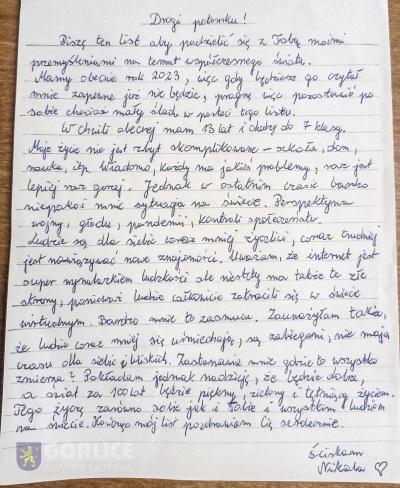 Drogi potomku!
Piszę ten list aby podzielić się z Tobą moimi
przemyśleniami na temat współczesnego świata.
Mamy obecnie rok 2023, więc gdy będziesz go czytał
mnie zapewne już nie będzie, pragnę więc pozostawić po
sobie chociaż mały ślad w postaci tego listu.
W chwili obecnej mam 13 lat i chodzę do 7 klasy.
Moje życie nie jest zbyt skomplikowane - szkoła, dom,
nauka, itp. Wiadomo, każdy ma jakieś problemy, raz jest
lepiej raz gorzej. Jednak w ostatnim czasie bardzo
niepokoi mnie sytuacja na świecie. Perspektywa
wojny, głodu, pandemii, kontroli społeczeństw.
Ludzie są dla siebie coraz mniej życzliwi, coraz trudniej
jest nawiązywać nowe znajomości. Uważam, że internet jest
super wynalazkiem ludzkości ale niestety ma także te złe
strony, ponieważ ludzie całkowicie zatracili się w świecie
wirtualnym. Bardzo mnie to zasmuca. Zauważyłam także,
że ludzie coraz mniej się uśmiechają, są zabiegani, nie mają
czasu dla siebie i bliskich. Zastanawia mnie gdzie to wszystko
zmierza? Pokładam jednak nadzieję, że będzie dobrze,
a świat za 100 lat będzie piękny, zielony i tętniący życiem.
Tego życzę zarówno sobie jak i Tobie i wszystkim ludziom
na świecie. Kończąc mój list pozdrawiam Cię serdecznie.
Ściskam
Nikola ♡
GORLICE
MIASTO ŚWIATŁA